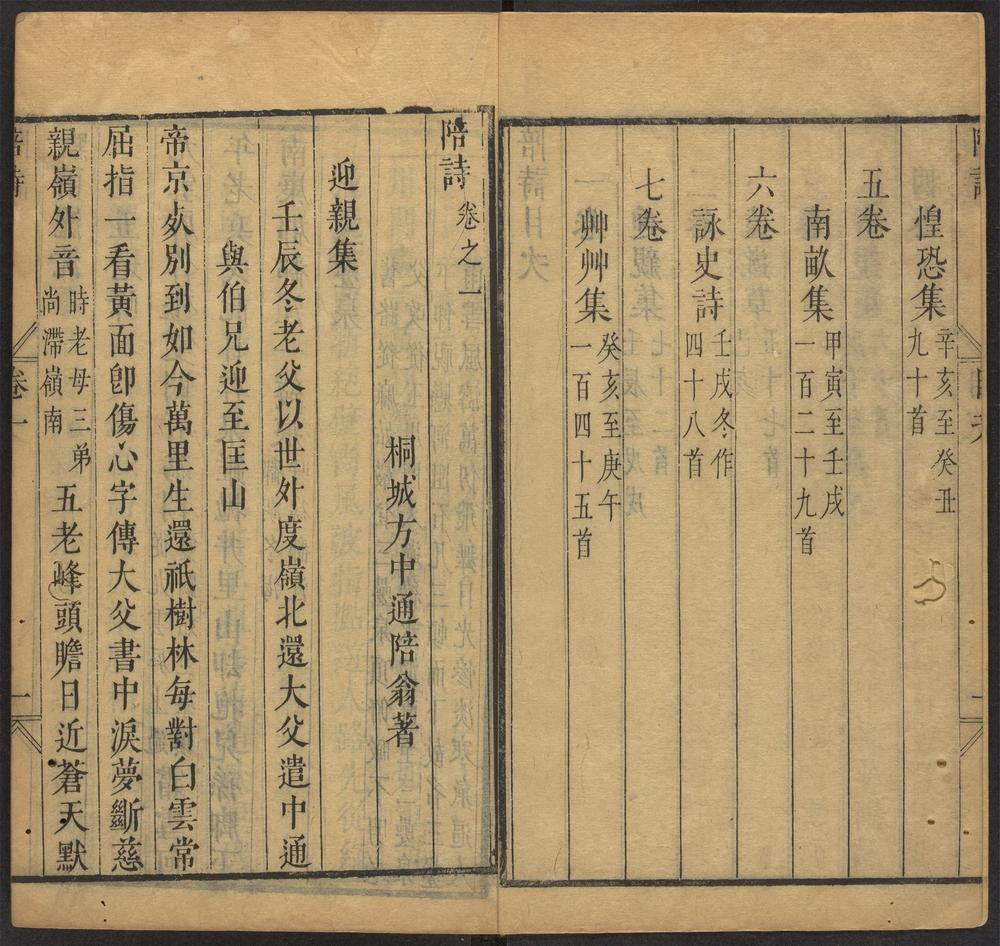 惶恐集
辛亥至癸丑
九十首
五卷
南畝集
甲寅至壬戌
一百二十九首
六卷
詠史詩
壬戌冬作
四十八首
七卷
艸艸集
癸亥至庚午
一百四十五首
陪詩 卷之一
桐城方中通陪翁著
迎親集
壬辰冬老父以世外度嶺北還大父遣中通
與伯兄迎至匡山
帝京㚒別到如今萬里生還祇樹林每對白雲常
屈指一看黃面卽傷心字傳大父書中淚夢斷慈
親嶺外音
時老母三弟
尚滯嶺南
五老峰頭瞻日近蒼天默
陪詩
卷一
一